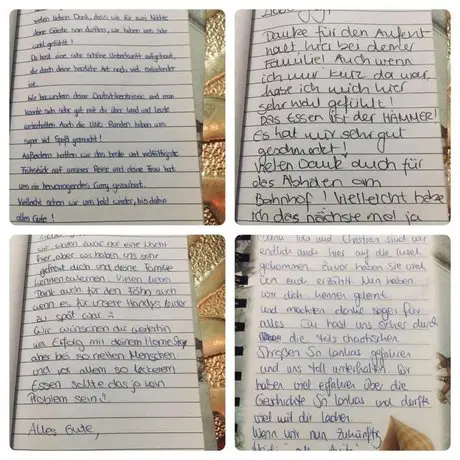 vielen lieben Dank, dass wir für zwei Nächte
deine Gäste sein durften, wir haben uns sehr
wohl gefühlt!
Du hast eine sehr schöne Unterkunft aufgebaut,
die durch deine herzliche Art noch viel
wir
konnte sich sehr gut mit dir über Land und Leute
unterhalten. Auch die UNO Runden haben uns
super viel Spaß gemacht!
Außerdem hatten wir das beste und vielfältigste
Frühstück auf unserer Reise und deine Frau hat
uns ein hervorragendes Curry gezaubert.
Vielleicht sehen wir uns bald wieder, bis dahin
alles Gute!
Danke für den Aufent
halt hier bei deiner
Familie! Auch wenn
ich nur kurz da war,
habe ich mich hier
sehr wohl gefühlt!
DAS ESSEN IST DER HAMMER!
Es hat mir sehr gut
geschmeckt!
Vielen Dank auch für
das Abholen am
Bahnhof! Vielleicht
ich das nächste mal ja
wir waren zwar nur eine Nacht
hier, aber wir haben uns sehr
gefreut dich und deine Familie
kennenzulernen. Vielen lieben
Dank auch für den Föhn auch
wenn es für unsere Handys leider
zu spät war :)
Wir wünschen dir weiterhin
viel Erfolg mit deinem Home Stay
aber bei so netten Menschen
und vor allem so leckerem
Essen sollte das ja kein
Problem sein :)
Alles Gute,
und Christian sind wir
endlich auch hier auf die Insel
gekommen. Zuvor haben sie viel
von euch erzählt. Nun haben
wir dich kennen gelernt
und möchten danke sagen für
alles. Du hast uns sicher durch
die teils chaotischen
Straßen Sri Lankas gefahren
und uns toll unterhalten. Wir
haben viel erfahren über die
Geschichte Sri Lankas und durften
viel mit dir lachen.
Wenn wir nun zukünftig